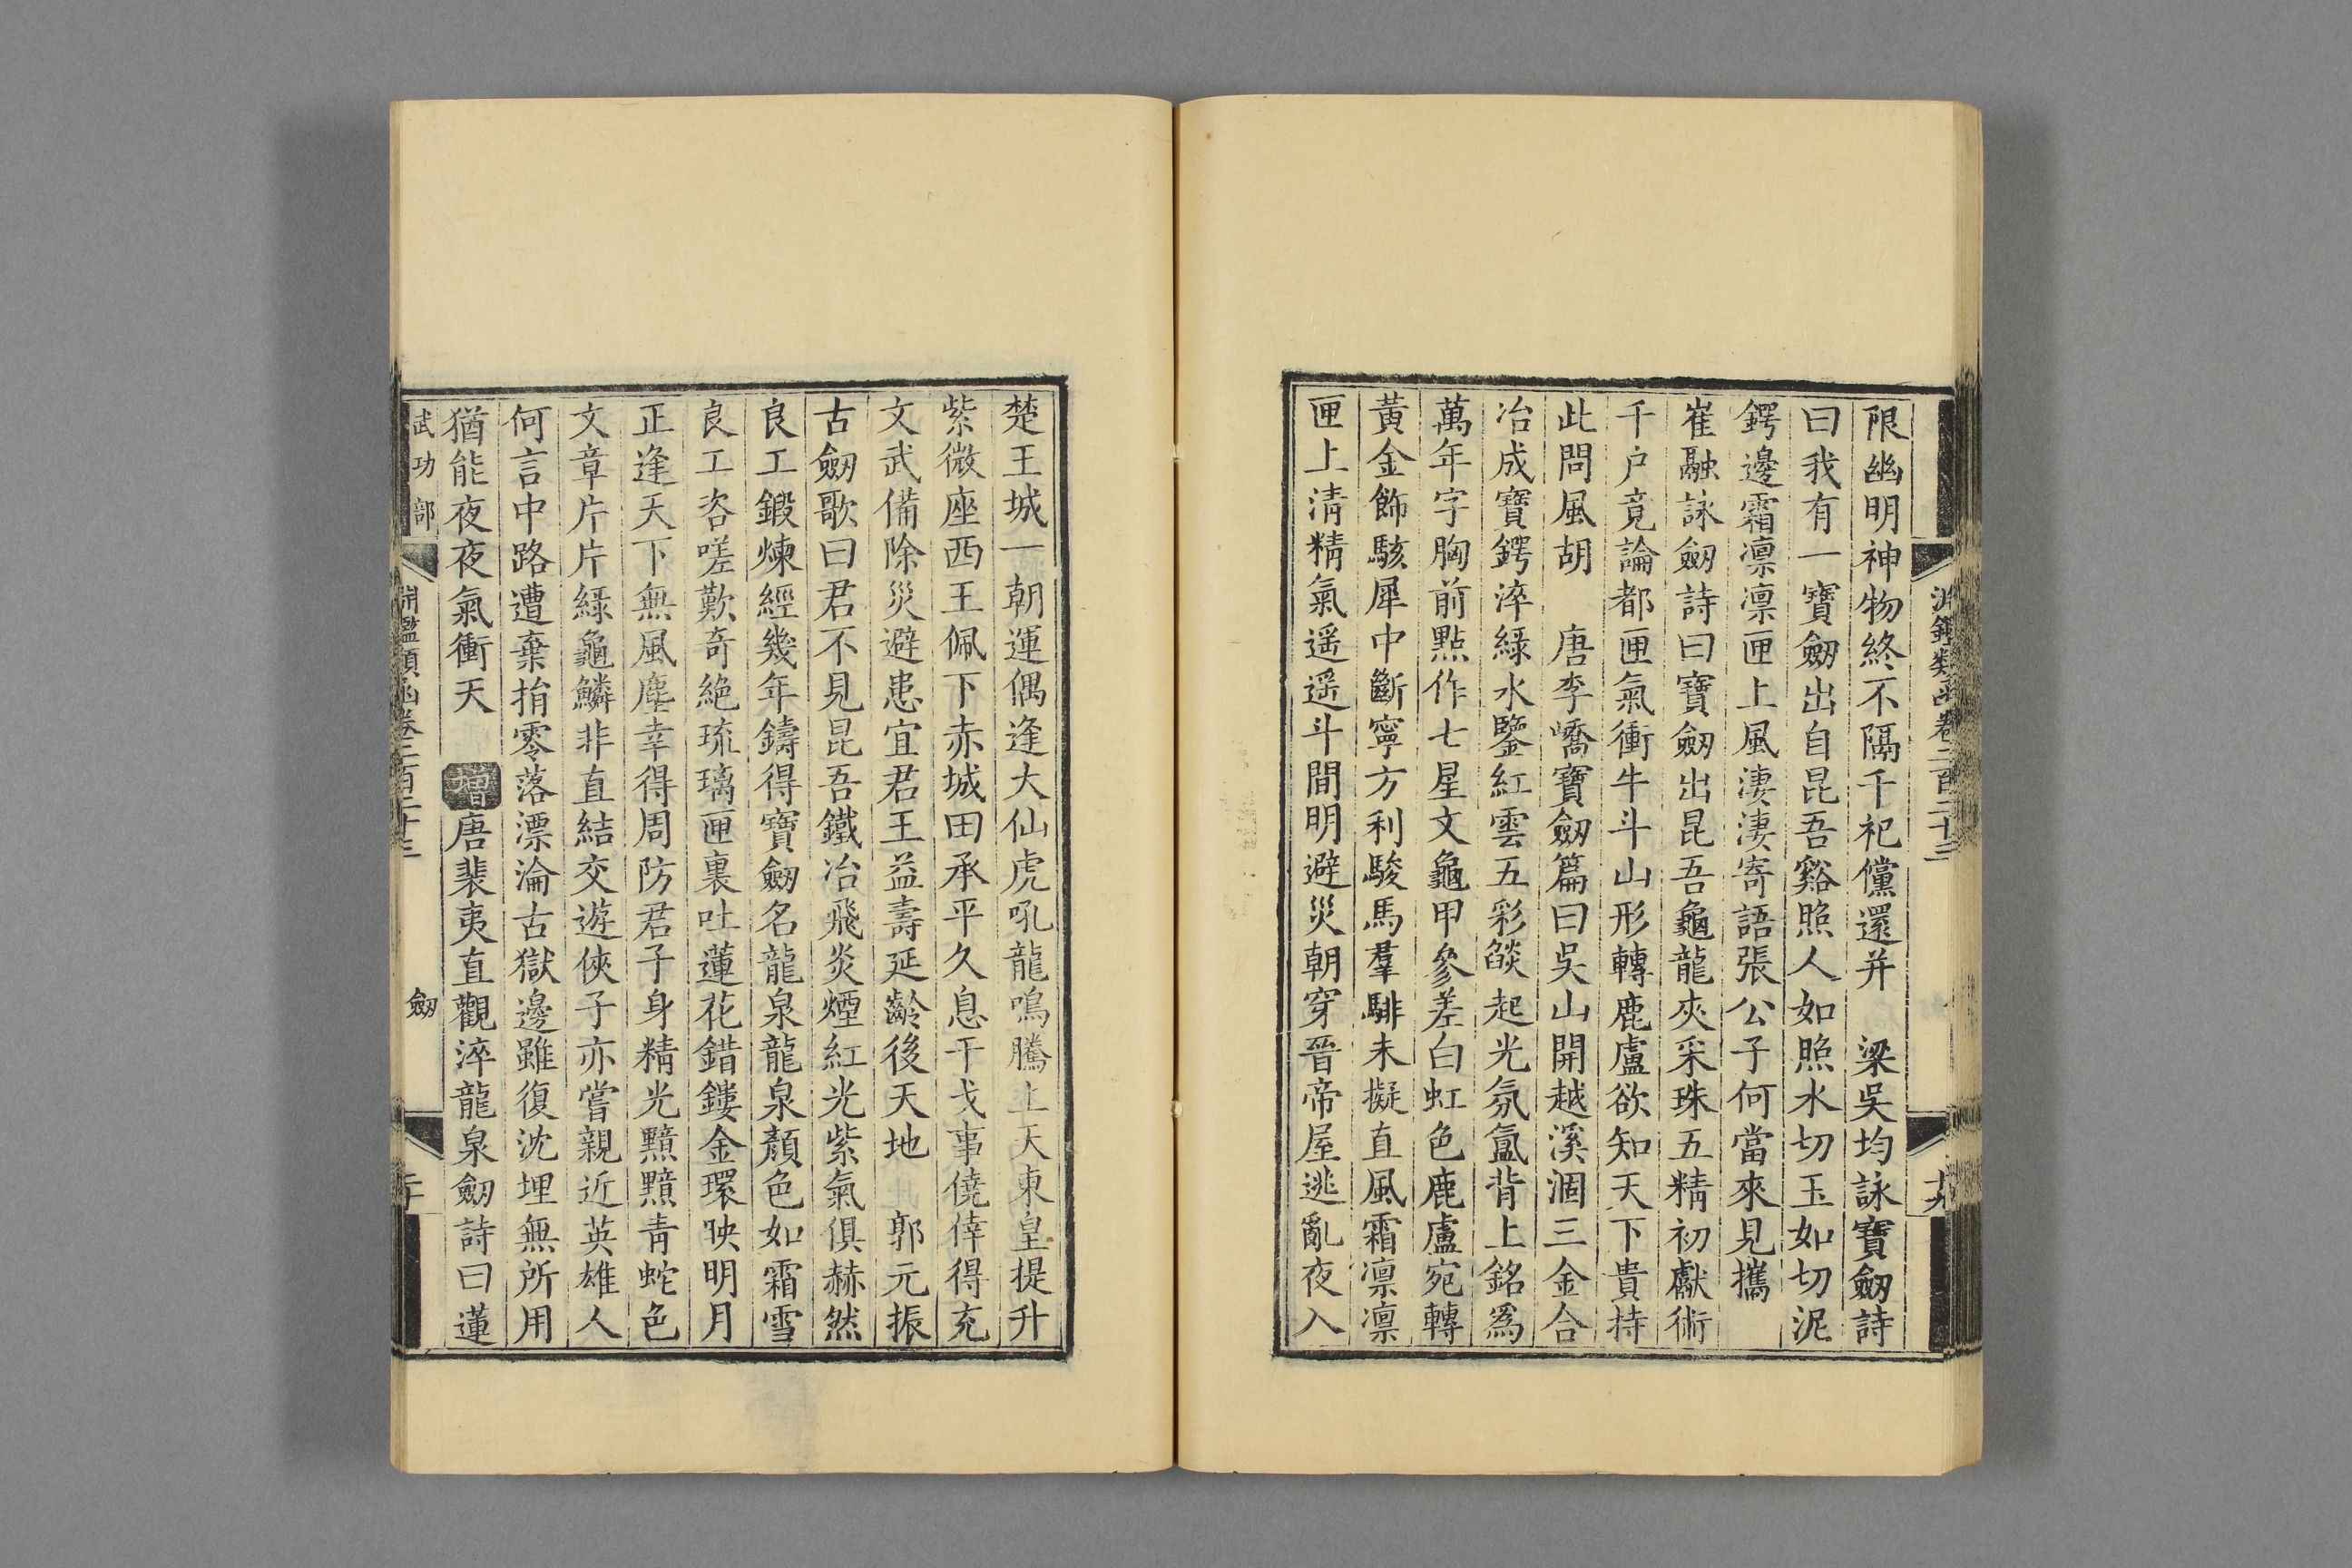 淵鑑類函卷二百二十三
十九
限幽明神物終不隔千祀儻還并　梁吳均詠寶劒詩
曰我有一寶劒出自昆吾谿照人如照水切玉如切泥
鍔邊霜凛凛匣上風淒淒寄語張公子何當來見攜
崔融詠劒詩曰寶劒出昆吾龜龍夾采珠五精初獻術
千户竟論都匣氣衝牛斗山形轉鹿盧欲知天下貴持
此問風胡　唐李嶠寶劒篇曰吳山開越溪涸三金合
冶成寶鍔淬綠水鑒紅雲五彩燄起光氛氳背上銘爲
萬年字胸前點作七星文龜甲參差白虹色鹿盧宛轉
黃金飾駭犀中斷寧方利駿馬羣騑未擬直風霜凛凛
匣上清精氣遥遥斗間明避災朝穿晉帝屋逃亂夜入
楚王城一朝運偶逢大仙虎吼龍鳴騰上天東皇提升
紫微座西王佩下赤城田承平久息干戈事僥倖得充
文武備除災避患宜君王益壽延齡後天地　郭元振
古劒歌曰君不見昆吾鐵冶飛炎煙紅光紫氣俱赫然
良工鍛煉經幾年鑄得寶劒名龍泉龍泉顏色如霜雪
良工咨嗟歎奇絶琉璃匣裏吐蓮花錯鏤金環映明月
正逢天下無風塵幸得周防君子身精光黯黯青蛇色
文章片片緑龜鱗非直結交遊俠子亦嘗親近英雄人
何言中路遭棄捐零落漂淪古獄邊雖復沈埋無所用
猶能夜夜氣衝天　增唐裴夷直觀淬龍泉劒詩曰蓮
武功部
淵鑑類函卷二百二十三
劒
二十